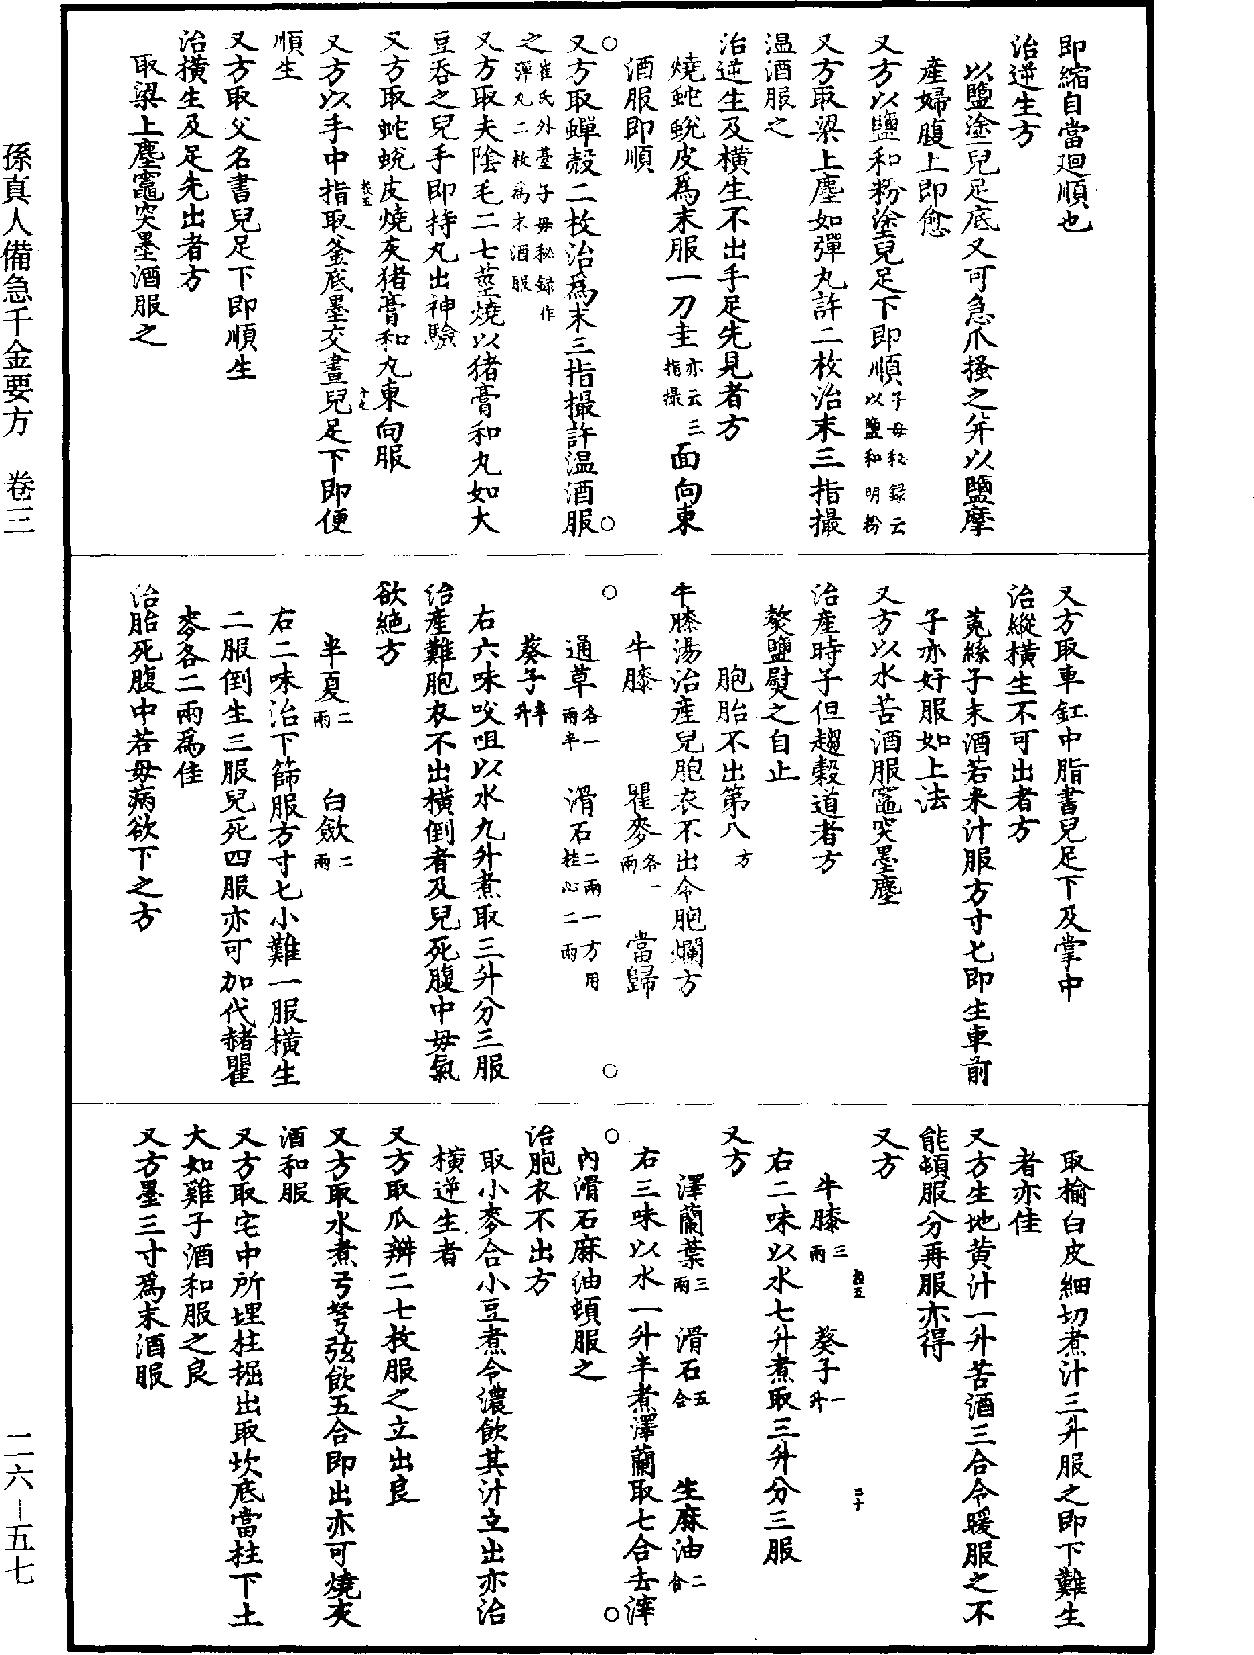 即縮自當迴順也
治逆生方
以鹽塗兒足底又可急爪搔之并以鹽摩
產婦腹上即愈
又方以鹽和粉塗兒足下即順子母秘錄云以鹽和明粉
又方取梁上塵如彈丸許二枚治末三指撮
温酒服之
治逆生及橫生不出手足先見者方
燒蛇蛻皮爲末服一刀圭亦云三指撮面向東
酒服即順
又方取蟬殼二枚治爲末三指撮許温酒服
之崔氏外臺子母秘錄作彈丸二枚爲末酒服
又方取夫陰毛二七莖燒以猪膏和丸如大
豆吞之兒手即持丸出神驗
又方取蛇蛻皮燒灰猪膏和丸東向服
又方以手中指取釜底墨交畫兒足下即便
順生
又方取父名書兒足下即順生
治橫生及足先出者方
取梁上塵竈突墨酒服之
又方取車釭中脂書兒足下及掌中
治縱橫生不可出者方
菟絲子末酒若米汁服方寸匕即生車前
子亦好服如上法
又方以水苦酒服竈突墨塵
治產時子但趨穀道者方
熬鹽熨之自止
胞胎不出第八方
牛膝湯治產兒胞衣不出令胞爛方
牛膝 瞿麥各一兩 當歸
通草各一兩半 滑石二兩一方用桂心二兩
葵子半升
右六味㕮咀以水九升煮取三升分三服
治產難胞衣不出橫倒者及兒死腹中母氣
欲絶方
半夏二兩 白歛二兩
右二味治下篩服方寸匕小難一服橫生
二服倒生三服兒死四服亦可加代赭瞿
麥各二兩爲佳
治胎死腹中若母病欲下之方
取榆白皮細切煮汁三升服之即下難生
者亦佳
又方生地黄汁一升苦酒三合令暖服之不
能頓服分再服亦得
又方
牛膝三兩 葵子一升
右二味以水七升煮取三升分三服
又方
澤蘭葉三兩 滑石五合 生麻油二合
右三味以水一升半煮澤蘭取七合去滓
内滑石麻油頓服之
治胞衣不出方
取小麥合小豆煮令濃飲其汁立出亦治
橫逆生者
又方取瓜瓣二七枚服之立出良
又方取水煮弓弩弦飲五合即出亦可燒灰
酒和服
又方取宅中所埋柱掘出取坎底當柱下土
大如雞子酒和服之良
又方墨三寸爲末酒服
孫真人備急千金要方 卷三
二六－五七